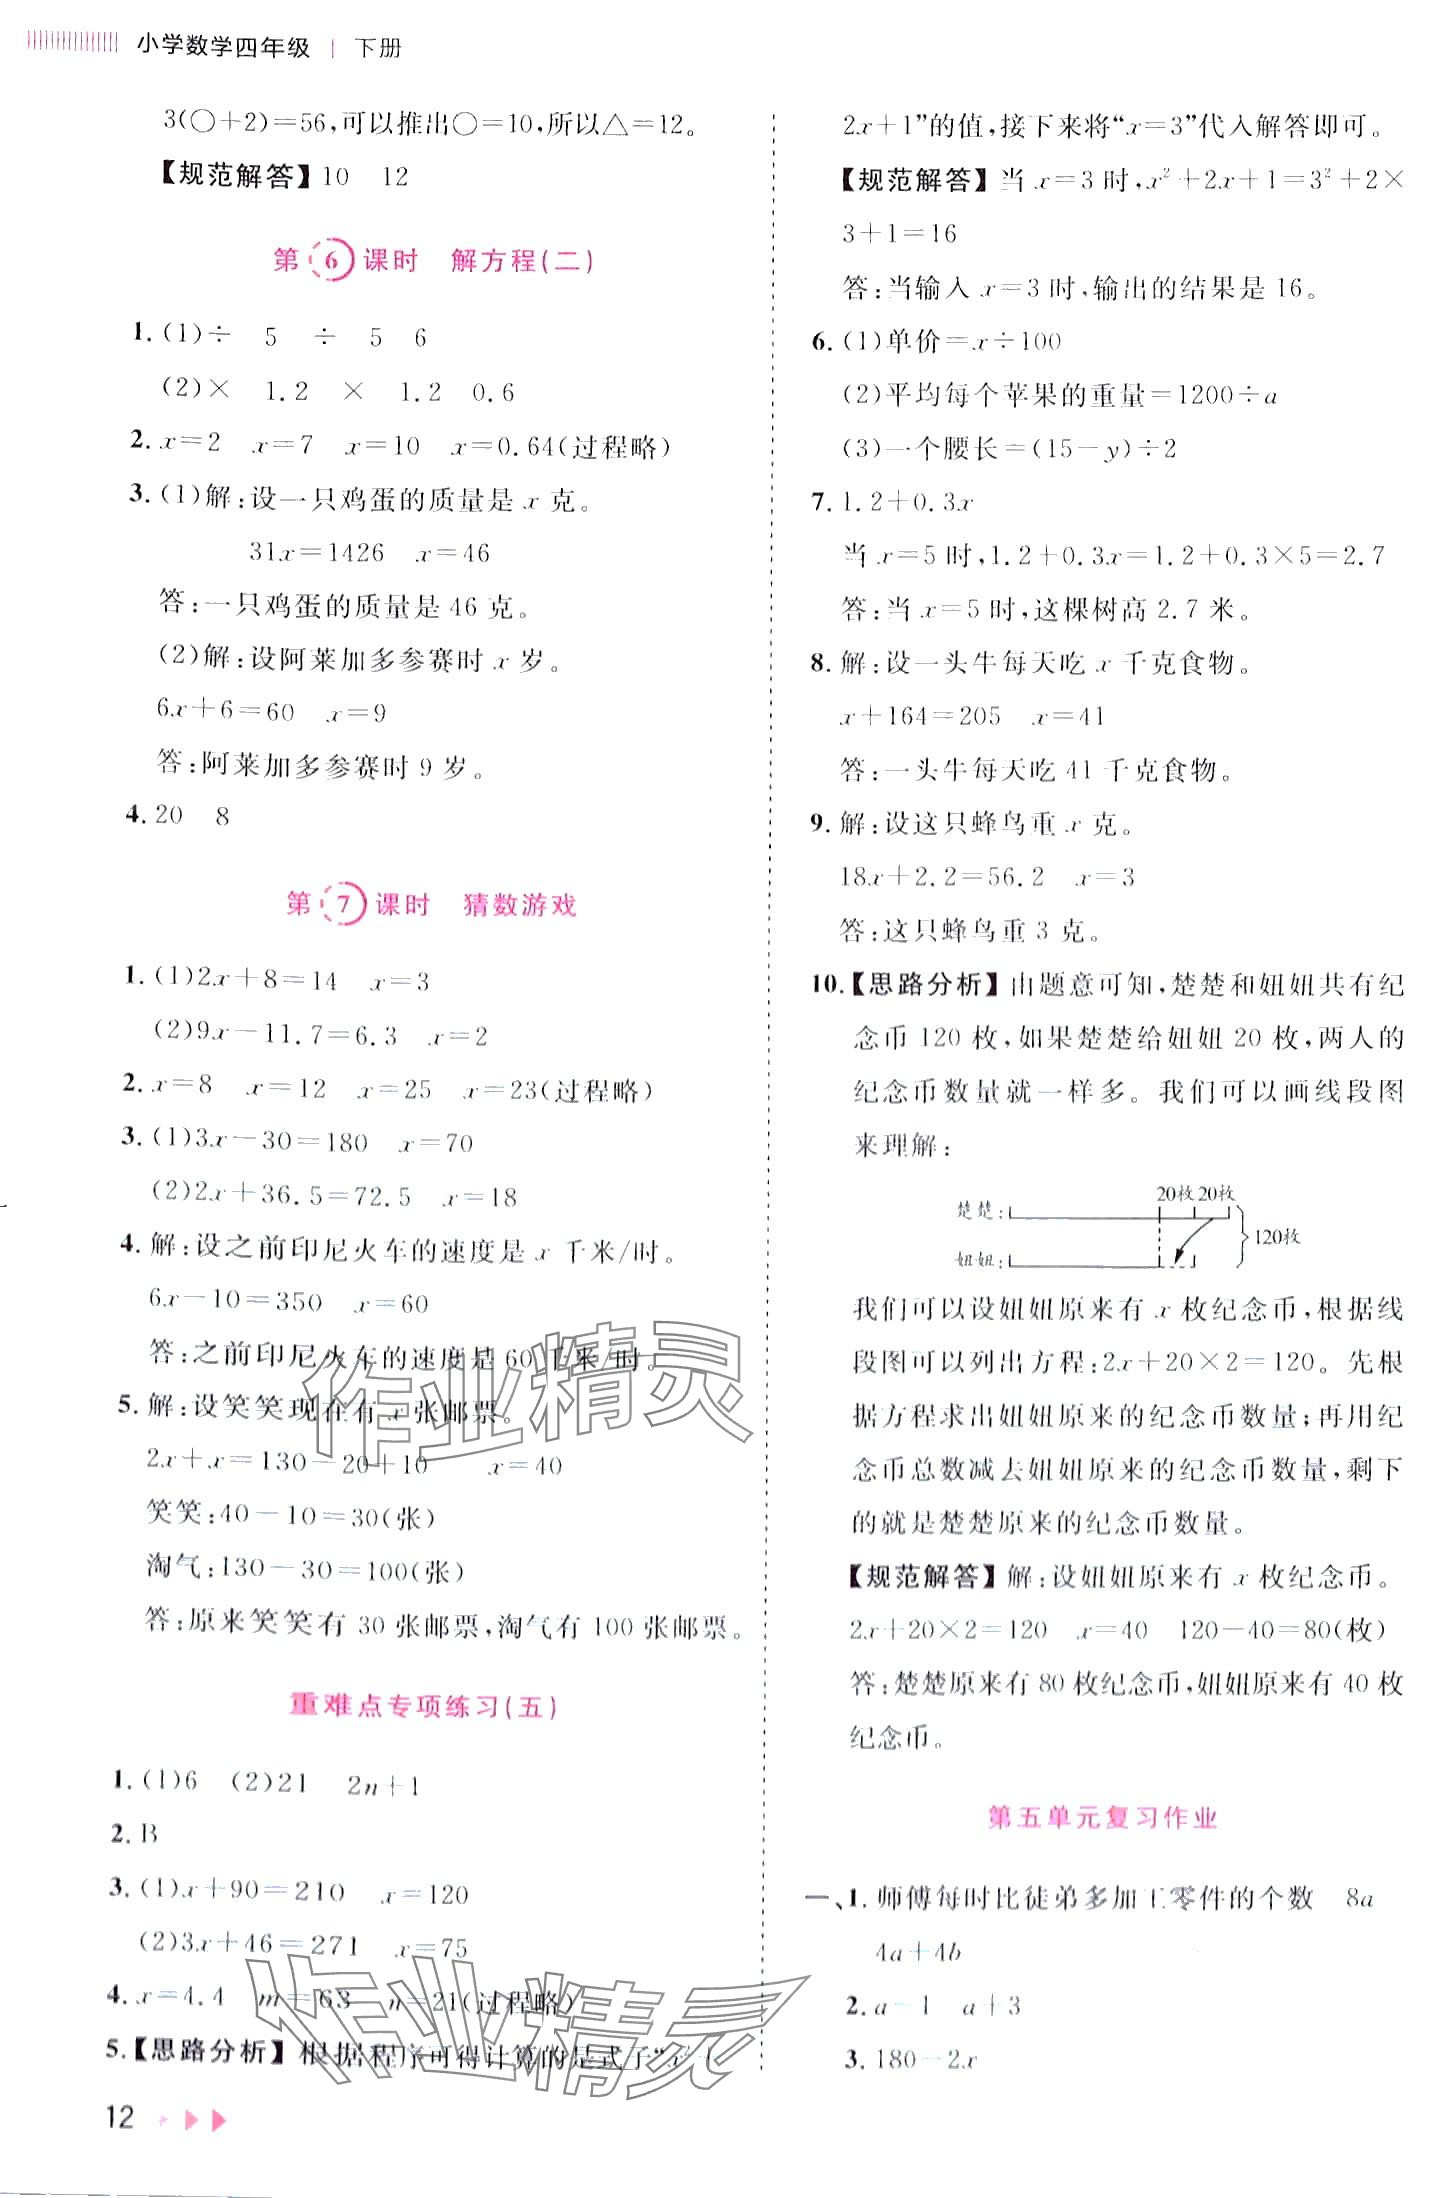 小学数学四年级 | 下册
3(○+2)=56,可以推出○=10,所以△=12。
【规范解答】10 12
第6课时 解方程(二)
1. (1)÷ 5 ÷ 5 6
(2)× 1.2 × 1.2 0.6
2. x=2 x=7 x=10 x=0.64(过程略)
3. (1)解:设一只鸡蛋的质量是 x 克。
31x=1426 x=46
答:一只鸡蛋的质量是 46 克。
(2)解:设阿莱加多参赛时 x 岁。
6x+6=60 x=9
答:阿莱加多参赛时 9 岁。
4. 20 8
第7课时 猜数游戏
1. (1)2x+8=14 x=3
(2)9x-11.7=6.3 x=2
2. x=8 x=12 x=25 x=23(过程略)
3. (1)3x-30=180 x=70
(2)2x+36.5=72.5 x=18
4. 解:设之前印尼火车的速度是 x 千米/时。
6x-10=350 x=60
答:之前印尼火车的速度是 60 千米/时。
5. 解:设笑笑现在有 x 张邮票。
2x+x=130-20+10 x=40
笑笑:40-10=30(张)
淘气:130-30=100(张)
答:原来笑笑有 30 张邮票,淘气有 100 张邮票。
重难点专项练习(五)
1. (1)6 (2)21 2n+1
2. B
3. (1)x+90=210 x=120
(2)3x+46=271 x=75
4. x=4.4 m=63 n=21(过程略)
5. 【思路分析】根据程序可得计算的是式子“x²+
2x+1”的值,接下来将“x=3”代入解答即可。
【规范解答】当 x=3 时,x²+2x+1=3²+2×
3+1=16
答:当输入 x=3 时,输出的结果是 16。
6. (1)单价=x÷100
(2)平均每个苹果的重量=1200÷a
(3)一个腰长=(15-y)÷2
7. 1.2+0.3x
当 x=5 时,1.2+0.3x=1.2+0.3×5=2.7
答:当 x=5 时,这棵树高 2.7 米。
8. 解:设一头牛每天吃 x 千克食物。
x+164=205 x=41
答:一头牛每天吃 41 千克食物。
9. 解:设这只蜂鸟重 x 克。
18x+2.2=56.2 x=3
答:这只蜂鸟重 3 克。
10. 【思路分析】由题意可知,楚楚和妞妞共有纪
念币 120 枚,如果楚楚给妞妞 20 枚,两人的
纪念币数量就一样多。我们可以画线段图
来理解:
20枚 20枚
楚楚:
120枚
妞妞:
我们可以设妞妞原来有 x 枚纪念币,根据线
段图可以列出方程:2x+20×2=120。先根
据方程求出妞妞原来的纪念币数量;再用纪
念币总数减去妞妞原来的纪念币数量,剩下
的就是楚楚原来的纪念币数量。
【规范解答】解:设妞妞原来有 x 枚纪念币。
2x+20×2=120 x=40 120-40=80(枚)
答:楚楚原来有 80 枚纪念币,妞妞原来有 40 枚
纪念币。
第五单元复习作业
一、1. 师傅每时比徒弟多加工零件的个数 8a
4a+4b
2. a-1 a+3
3. 180-2x
12
作业精灵
作业精灵